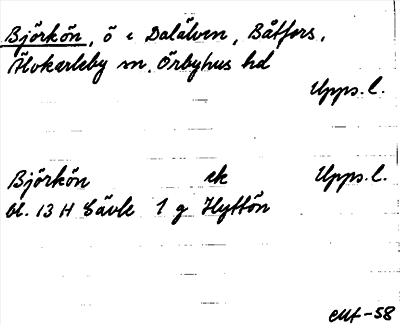 Björkön, ö i Dalälven, Båtfors,
Älvkarleby sn, Örbyhus hd
Upps. l.
Björkön ek Upps. l.
bl. 13 H Gävle 1 g Hyttön
-58